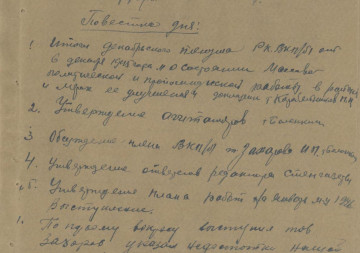 Повестка дня:
1. Итоги декабрьского пленума РК ВКП(б) от
6 декабря о состоянии массово
политической и пропагандистской работы в районе
и мерах ее улучшения доклад т.
2. Утверждение агитаторов
3. Обсуждение члена ВКП(б) т. Захарова И.П.
4. Утверждение ответств. редактора стенгазеты
5. Утверждение плана работы на январь м-ц
Выступления:
1. По первому вопросу выступил тов
Захаров указал недостатки нашей